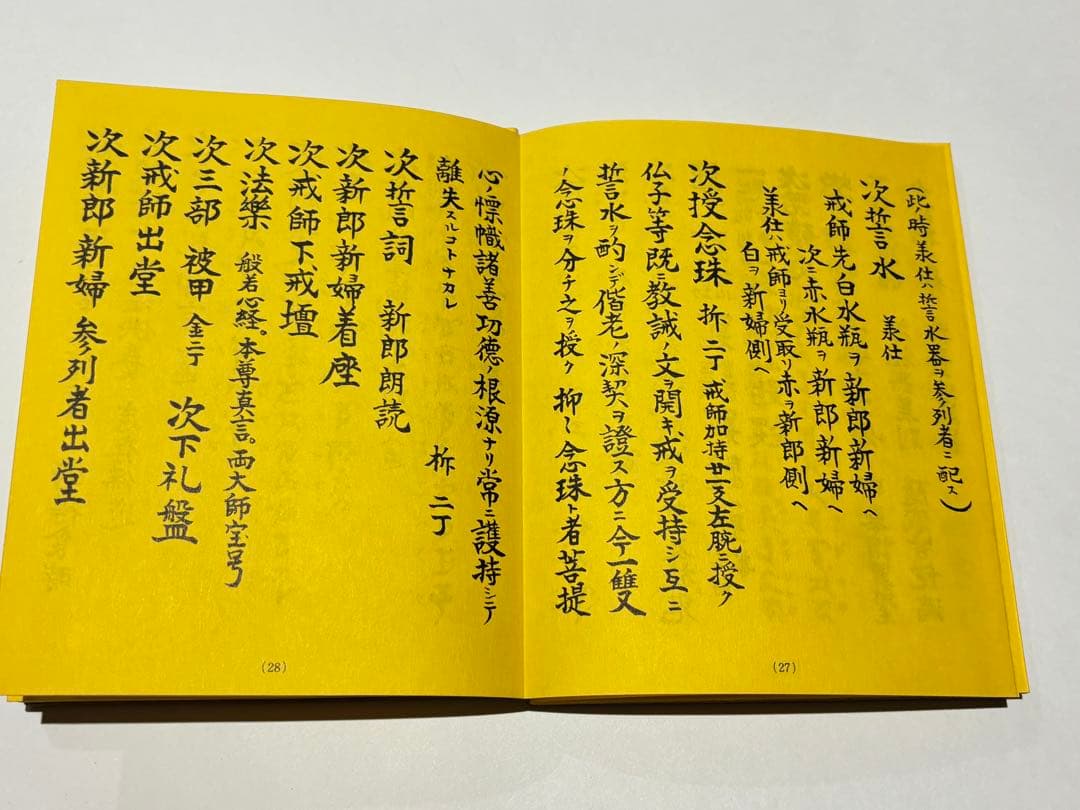 (此ノ時美仕ハ誓水器ヲ参列者ニ配ス)
次誓水 美仕
戒師先白水瓶ヲ新郎新婦ヘ
次ニ赤水瓶ヲ新郎新婦ヘ
美仕ハ戒師ヨリ受取リ赤ヲ新郎側ヘ
白ヲ新婦側ヘ
次授念珠 柝二丁 戒師加持廿一反左腕ニ授ク
仏子等既ニ教誡ノ文ヲ開キ、戒ヲ受持シ互ニ
誓水ヲ酌ンデ偕老ノ深契ヲ證ス方ニ今一雙
ノ念珠ヲ分チ之ヲ授ク 抑〻念珠ト者菩提
(27)
心ノ幖幟諸善功徳ノ根源ナリ常ニ護持シテ
離失スルコトナカレ 柝二丁
次誓詞 新郎朗読
次新郎新婦着座
次戒師下戒壇
次法樂 般若心経。本尊真言。両大師宝号
次三部 被甲 金二丁 次下礼盤
次戒師出堂
次新郎新婦 参列者出堂
(28)